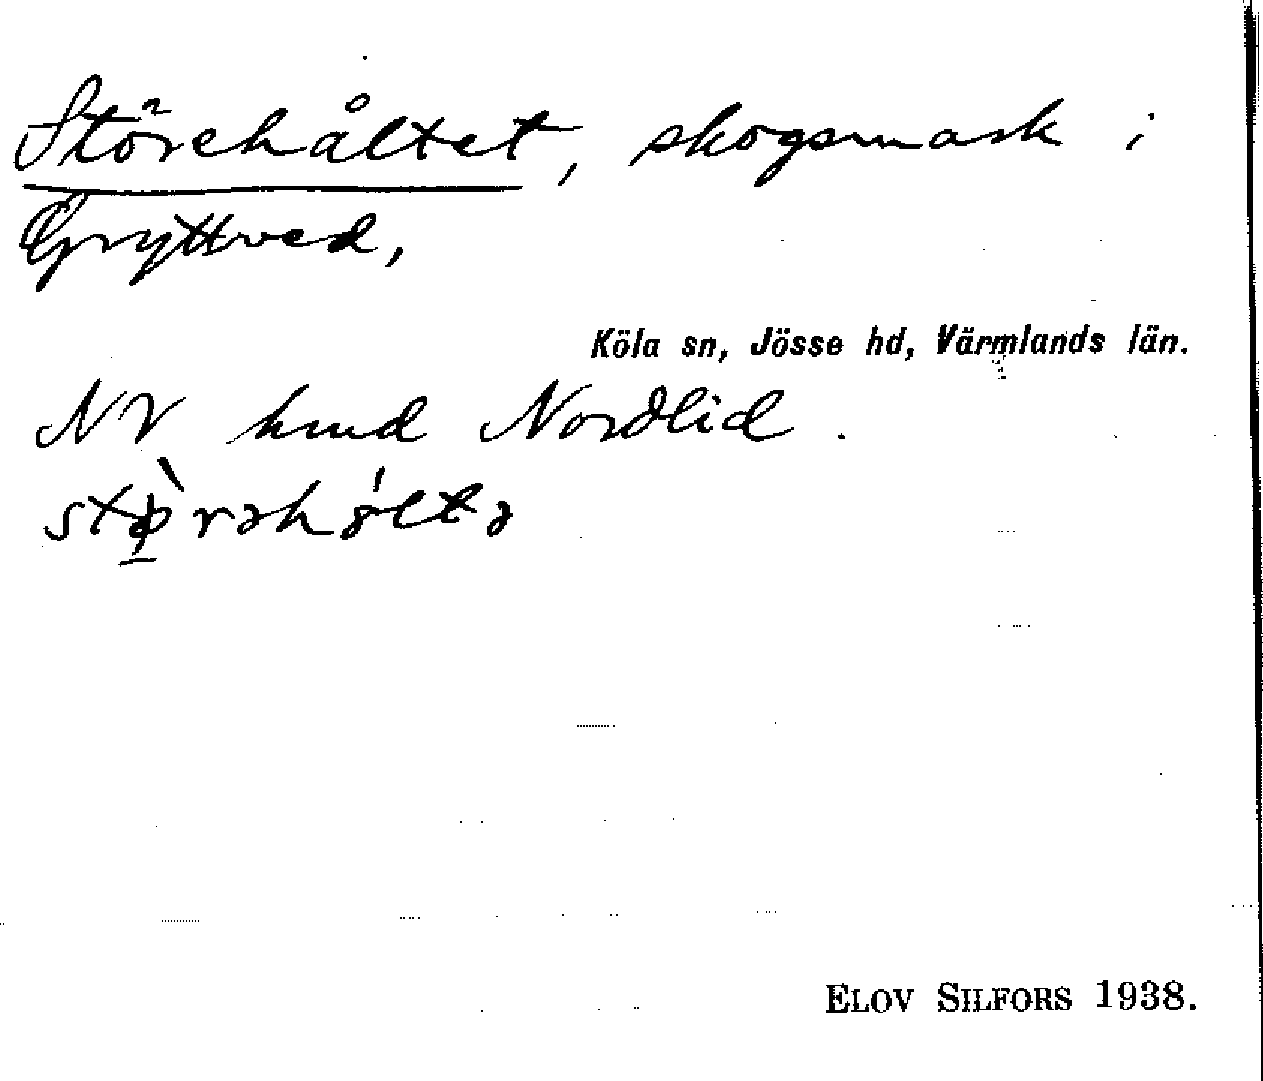 Störehåltet, skogsmark i
Gryttved,
Köla sn, Jösse hd, Värmlands län.
NV hmd Nordlid.
stø̱̀rəhɵ́ltə
ELOV SILFORS 1938.